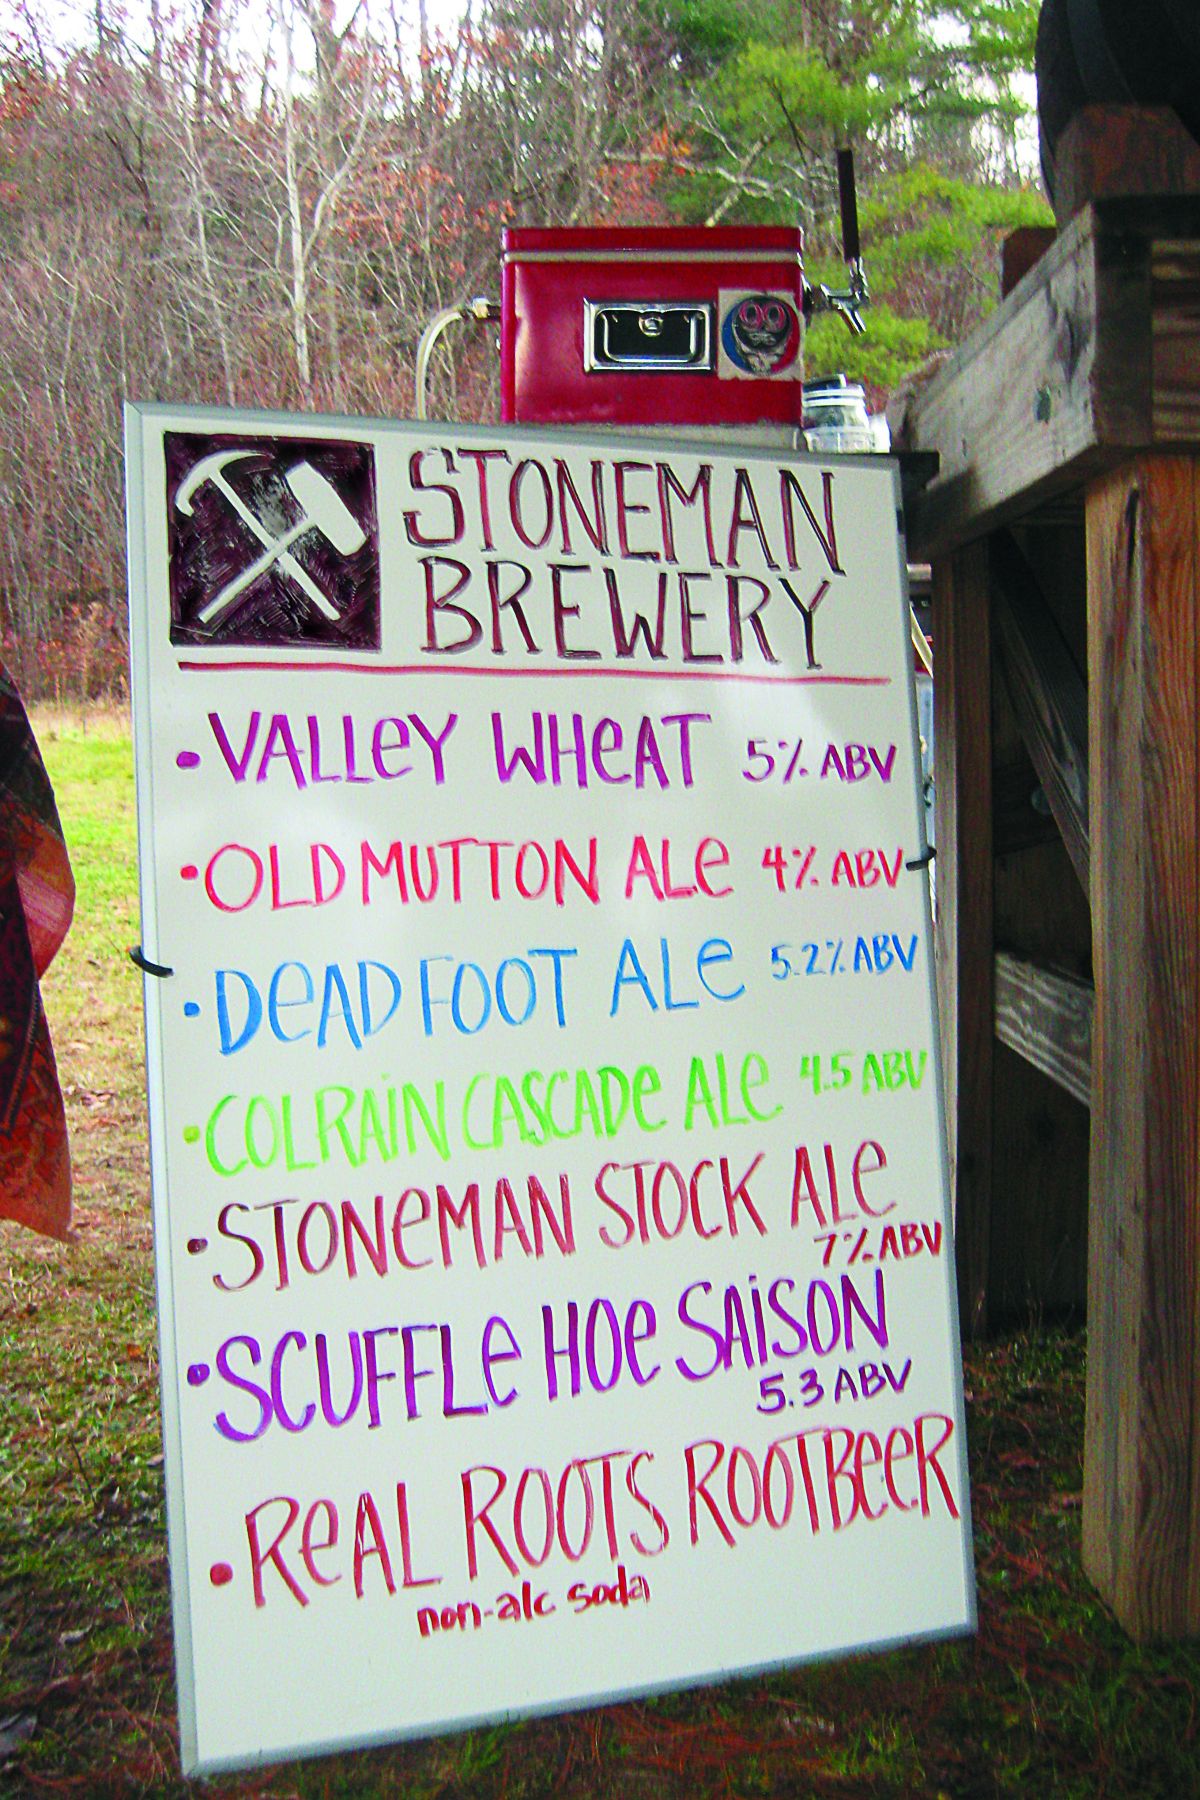 STONEMAN
BREWERY
• VALLeY WHeAT 5% ABV
• OLD MUTTON ALe 4% ABV
• DeAD FOOT ALe 5.2% ABV
• COLRAiN CASCADe ALe 4.5 ABV
• STONeMAN STOCK ALe
7% ABV
• SCUFFLe HOe SAiSON
5.3 ABV
• ReAL ROOTS ROOTBeeR
non-alc soda